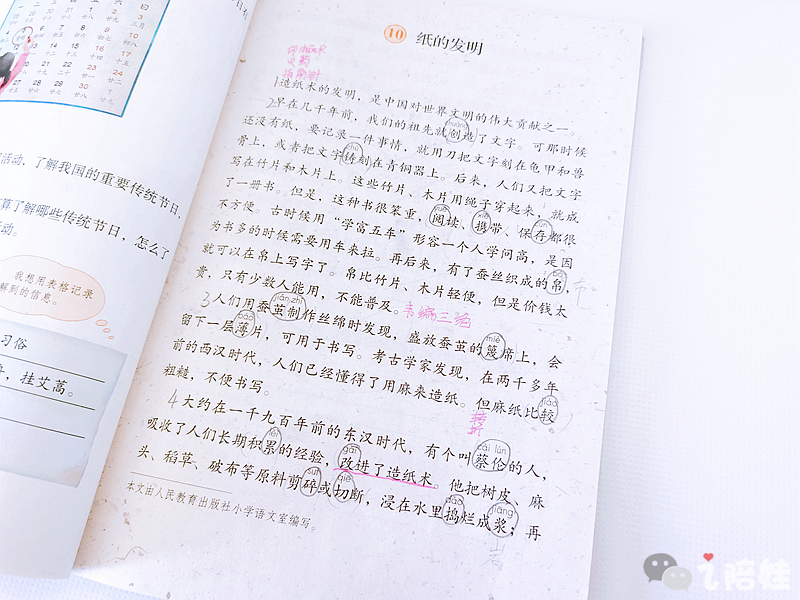 10 纸的发明
1造纸术的发明，是中国对世界文明的伟大贡献之一。
2早在几千年前，我们的祖先就创造了文字。可那时候
chuàng
还没有纸，要记录一件事情，就用刀把文字刻在龟甲和兽
骨上，或者把文字铸刻在青铜器上。后来，人们又把文字
zhù
写在竹片和木片上。这些竹片、木片用绳子穿起来，就成
了一册书。但是，这种书很笨重，阅读、携带、保存都很
yuè xié cún
不方便。古时候用“学富五车”形容一个人学问高，是因
为书多的时候需要用车来拉。再后来，有了蚕丝织成的帛，
bó
就可以在帛上写字了。帛比竹片、木片轻便，但是价钱太
贵，只有少数人能用，不能普及。
3人们用蚕茧制作丝绵时发现，盛放蚕茧的篾席上，会
jiǎn zhì miè
留下一层薄片，可用于书写。考古学家发现，在两千多年
báo
前的西汉时代，人们已经懂得了用麻来造纸。但麻纸比较
jiào
粗糙，不便书写。
转折
4大约在一千九百年前的东汉时代，有个叫蔡伦的人，
cài lún
吸收了人们长期积累的经验，改进了造纸术。他把树皮、麻
lěi gǎi
头、稻草、破布等原料剪碎或切断，浸在水里捣烂成浆；再
suì qiē jiāng
本文由人民教育出版社小学语文室编写。
活动，了解我国的重要传统节日，
算了解哪些传统节日，怎么了
活动。
我想用表格记录
了解到的信息。
习俗
，挂艾蒿。
i陪娃